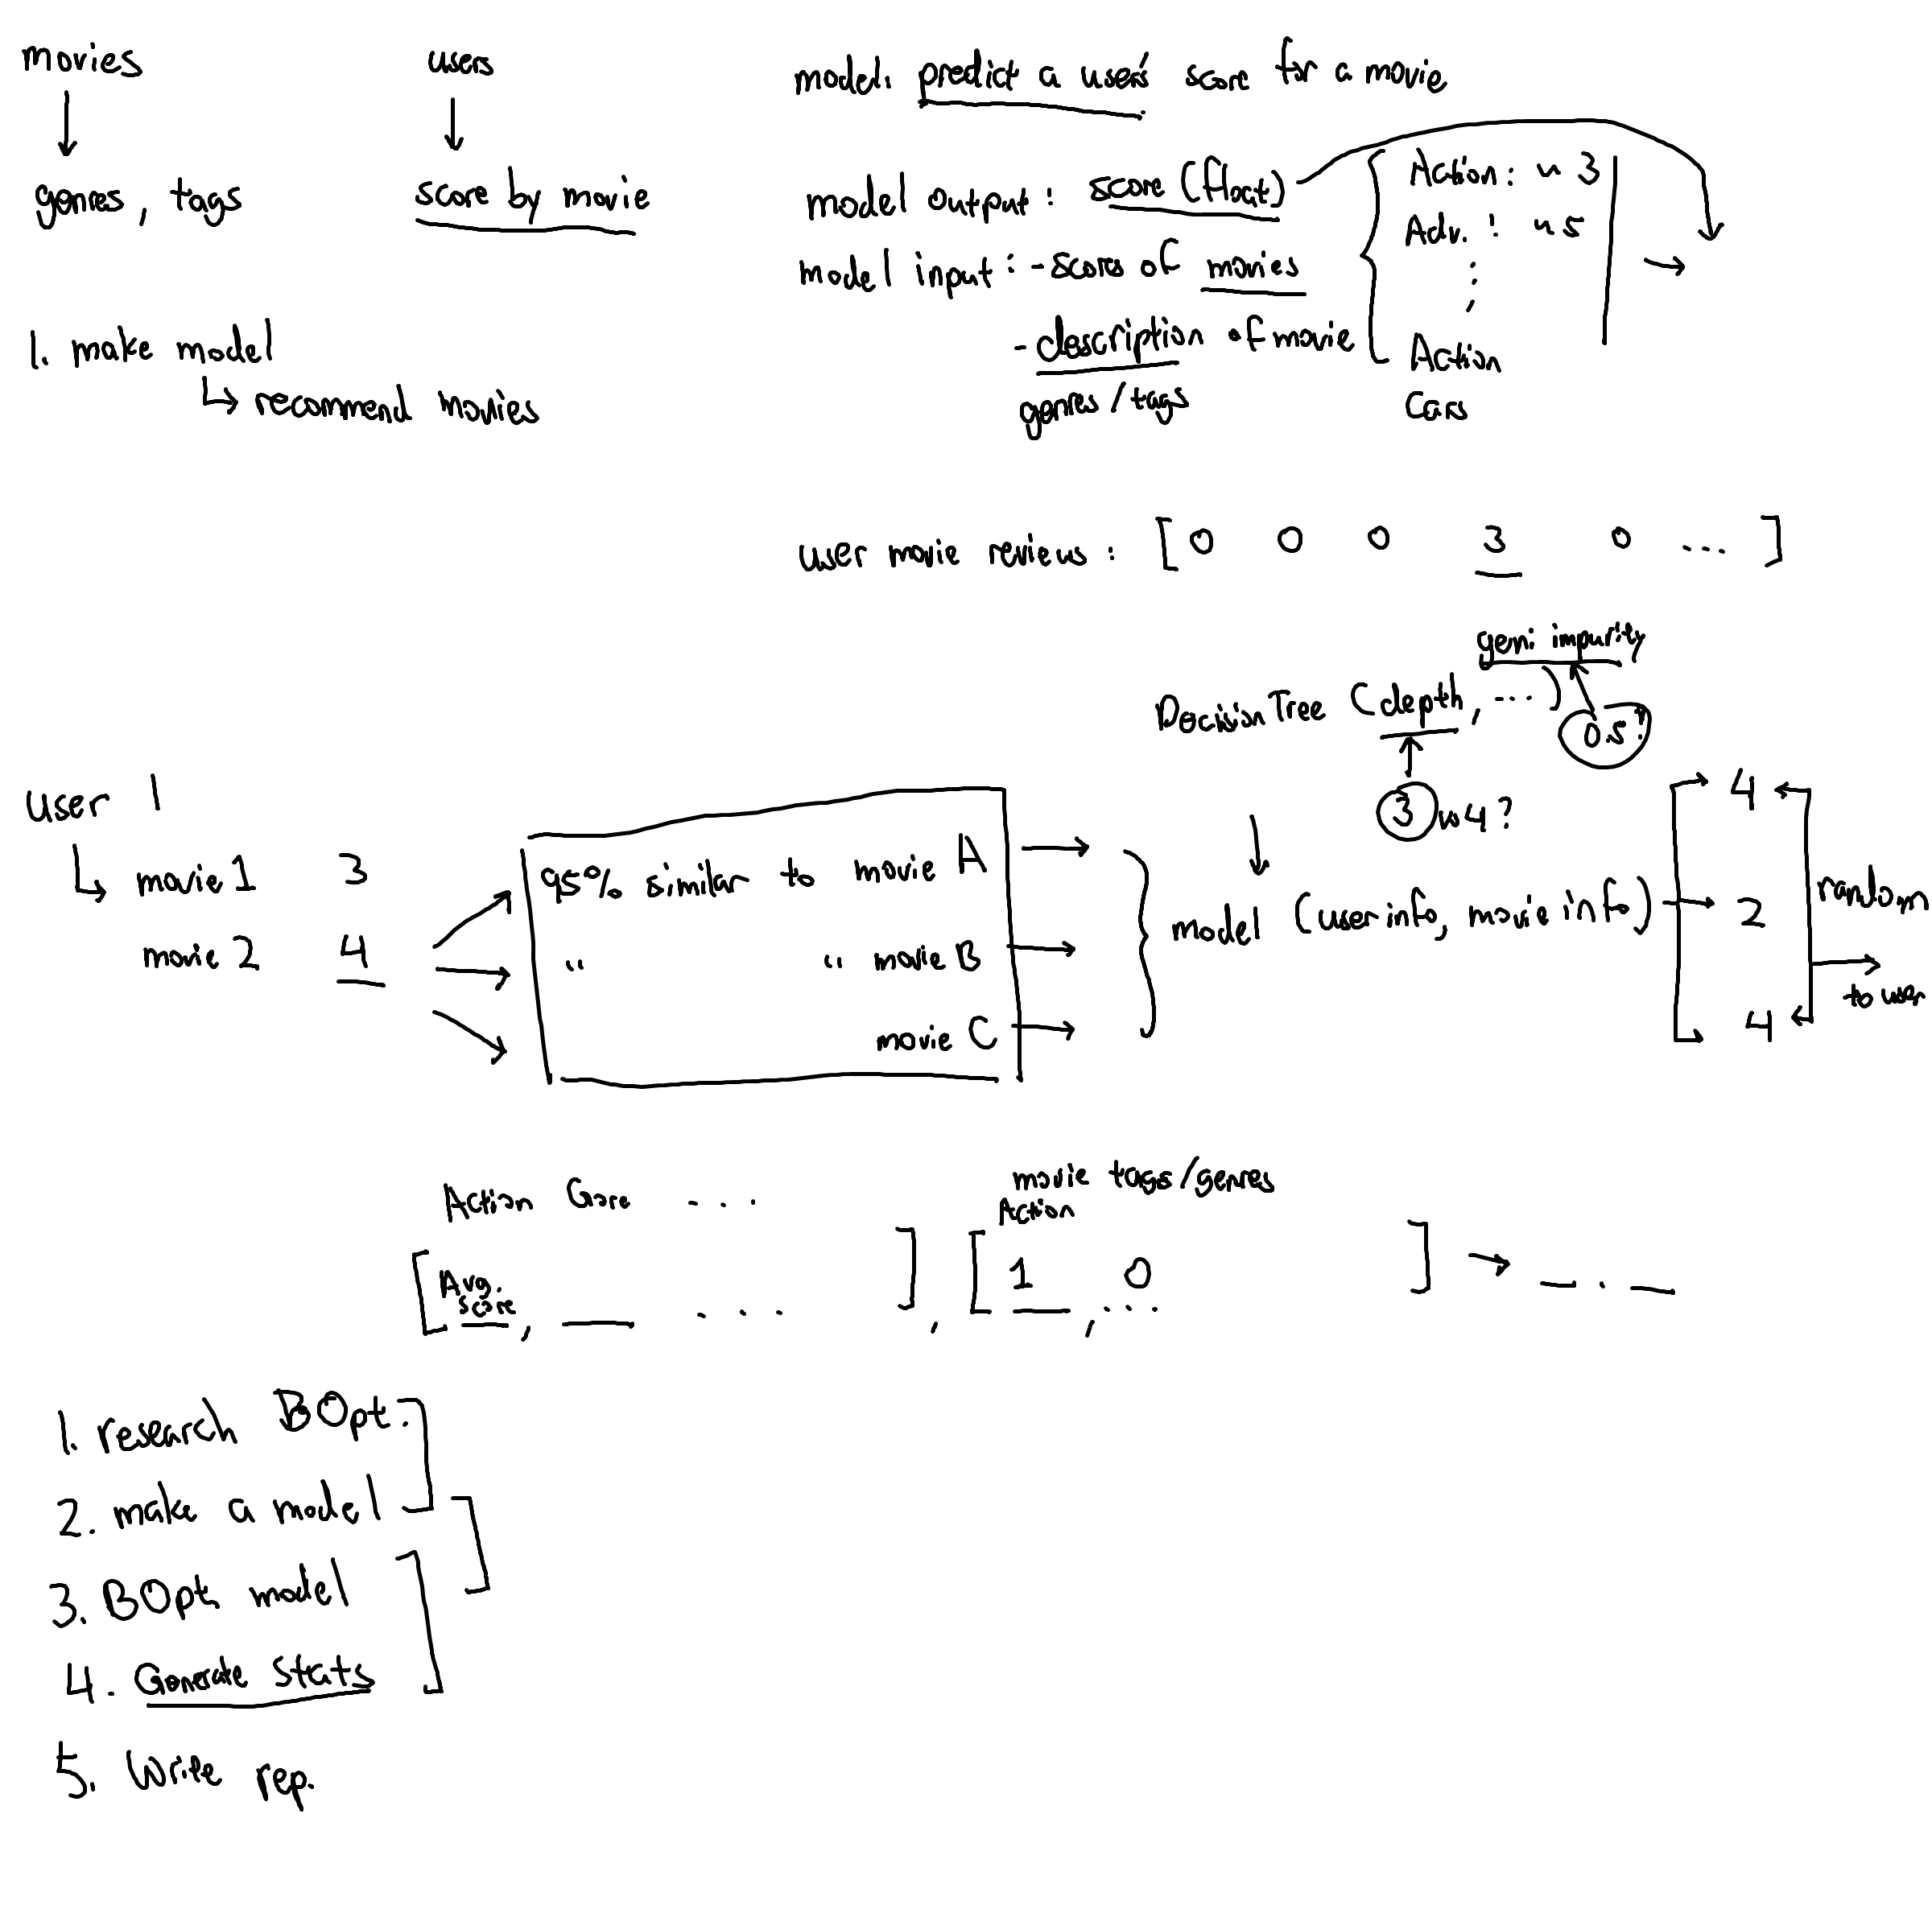 movies
users
genres, tags
score by movie
1. make model
recommend movies
model: predict a user's score for a movie
model output: score (float)
model input: - scores of movies
- description of movie
genres/tags
Action: ~ 3
Adv. : ~5
Action
Cars
user movie reviews: [ 0 0 0 3 0 ... ]
geni impurity
DecisionTree (depth, ...)
0.5?
3 vs 4?
user 1
movie 1 3
movie 2 4
95% similar to movie A
" " movie B
movie C
model (user info, movie info)
4
2
4
random
to user
Action Gore ...
[ Avg. score, __ ... ],
movie tags/genres
Action
[ 1, 0 ... ] → __ . __
1. research BOpt.
2. make a model
3. BOpt model
4. Generate stats
5. Write rep.